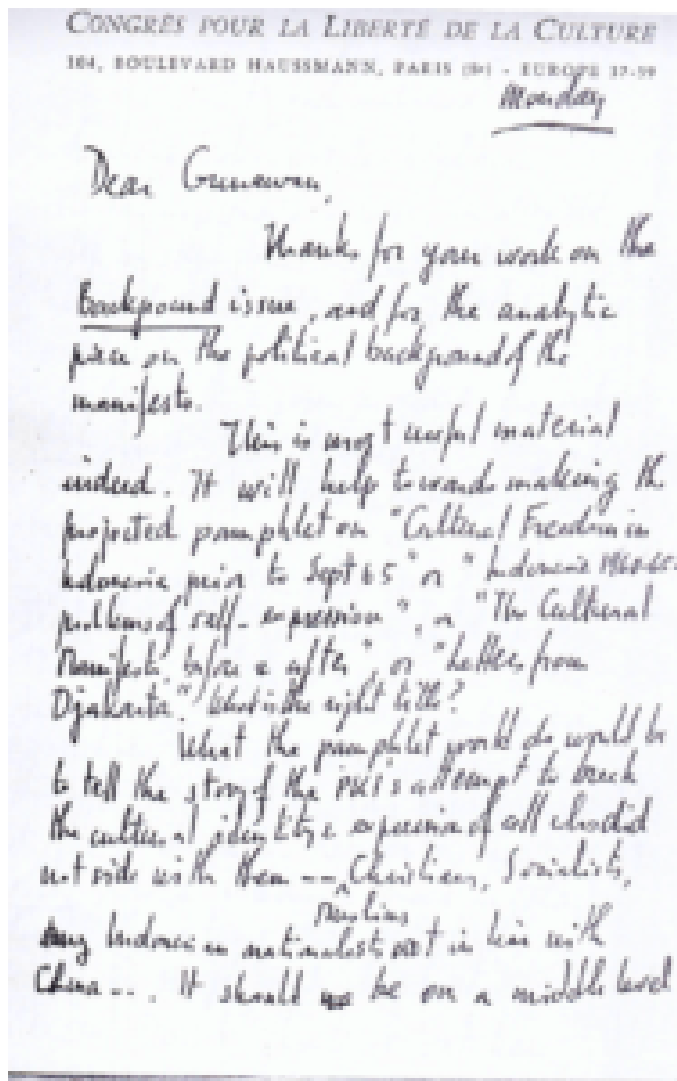 CONGRÈS POUR LA LIBERTÉ DE LA CULTURE
104, BOULEVARD HAUSSMANN, PARIS (8e) - EUROPE 57-59
Monday
Dear Gunawan,
Thanks for your work on the
Background issue, and for the analytic
piece on the political background of the
manifesto.
This is most useful material
indeed. It will help towards making the
projected pamphlet on "Cultural Freedom in
Indonesia prior to Sept 65" or "Indonesia 1960-65:
problems of self-expression", or "The Cultural
Manifesto before & after", or "Letters from
Djakarta". What is the right title?
What the pamphlet would do would be
to tell the story of the PKI's attempt to break
the cultural identity & expression of all who did
not side with them -- Christians, Socialists,
Muslims
any Indonesian nationalists not in line with
China --. It should be on a middle level